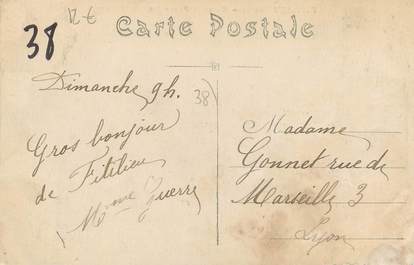 12 €
38
Carte Postale
Dimanche 9h.
38
Gros bonjour
de Fitilieu
Mme Guerre
Madame
Gonnet rue de
Marseille 3
Lyon